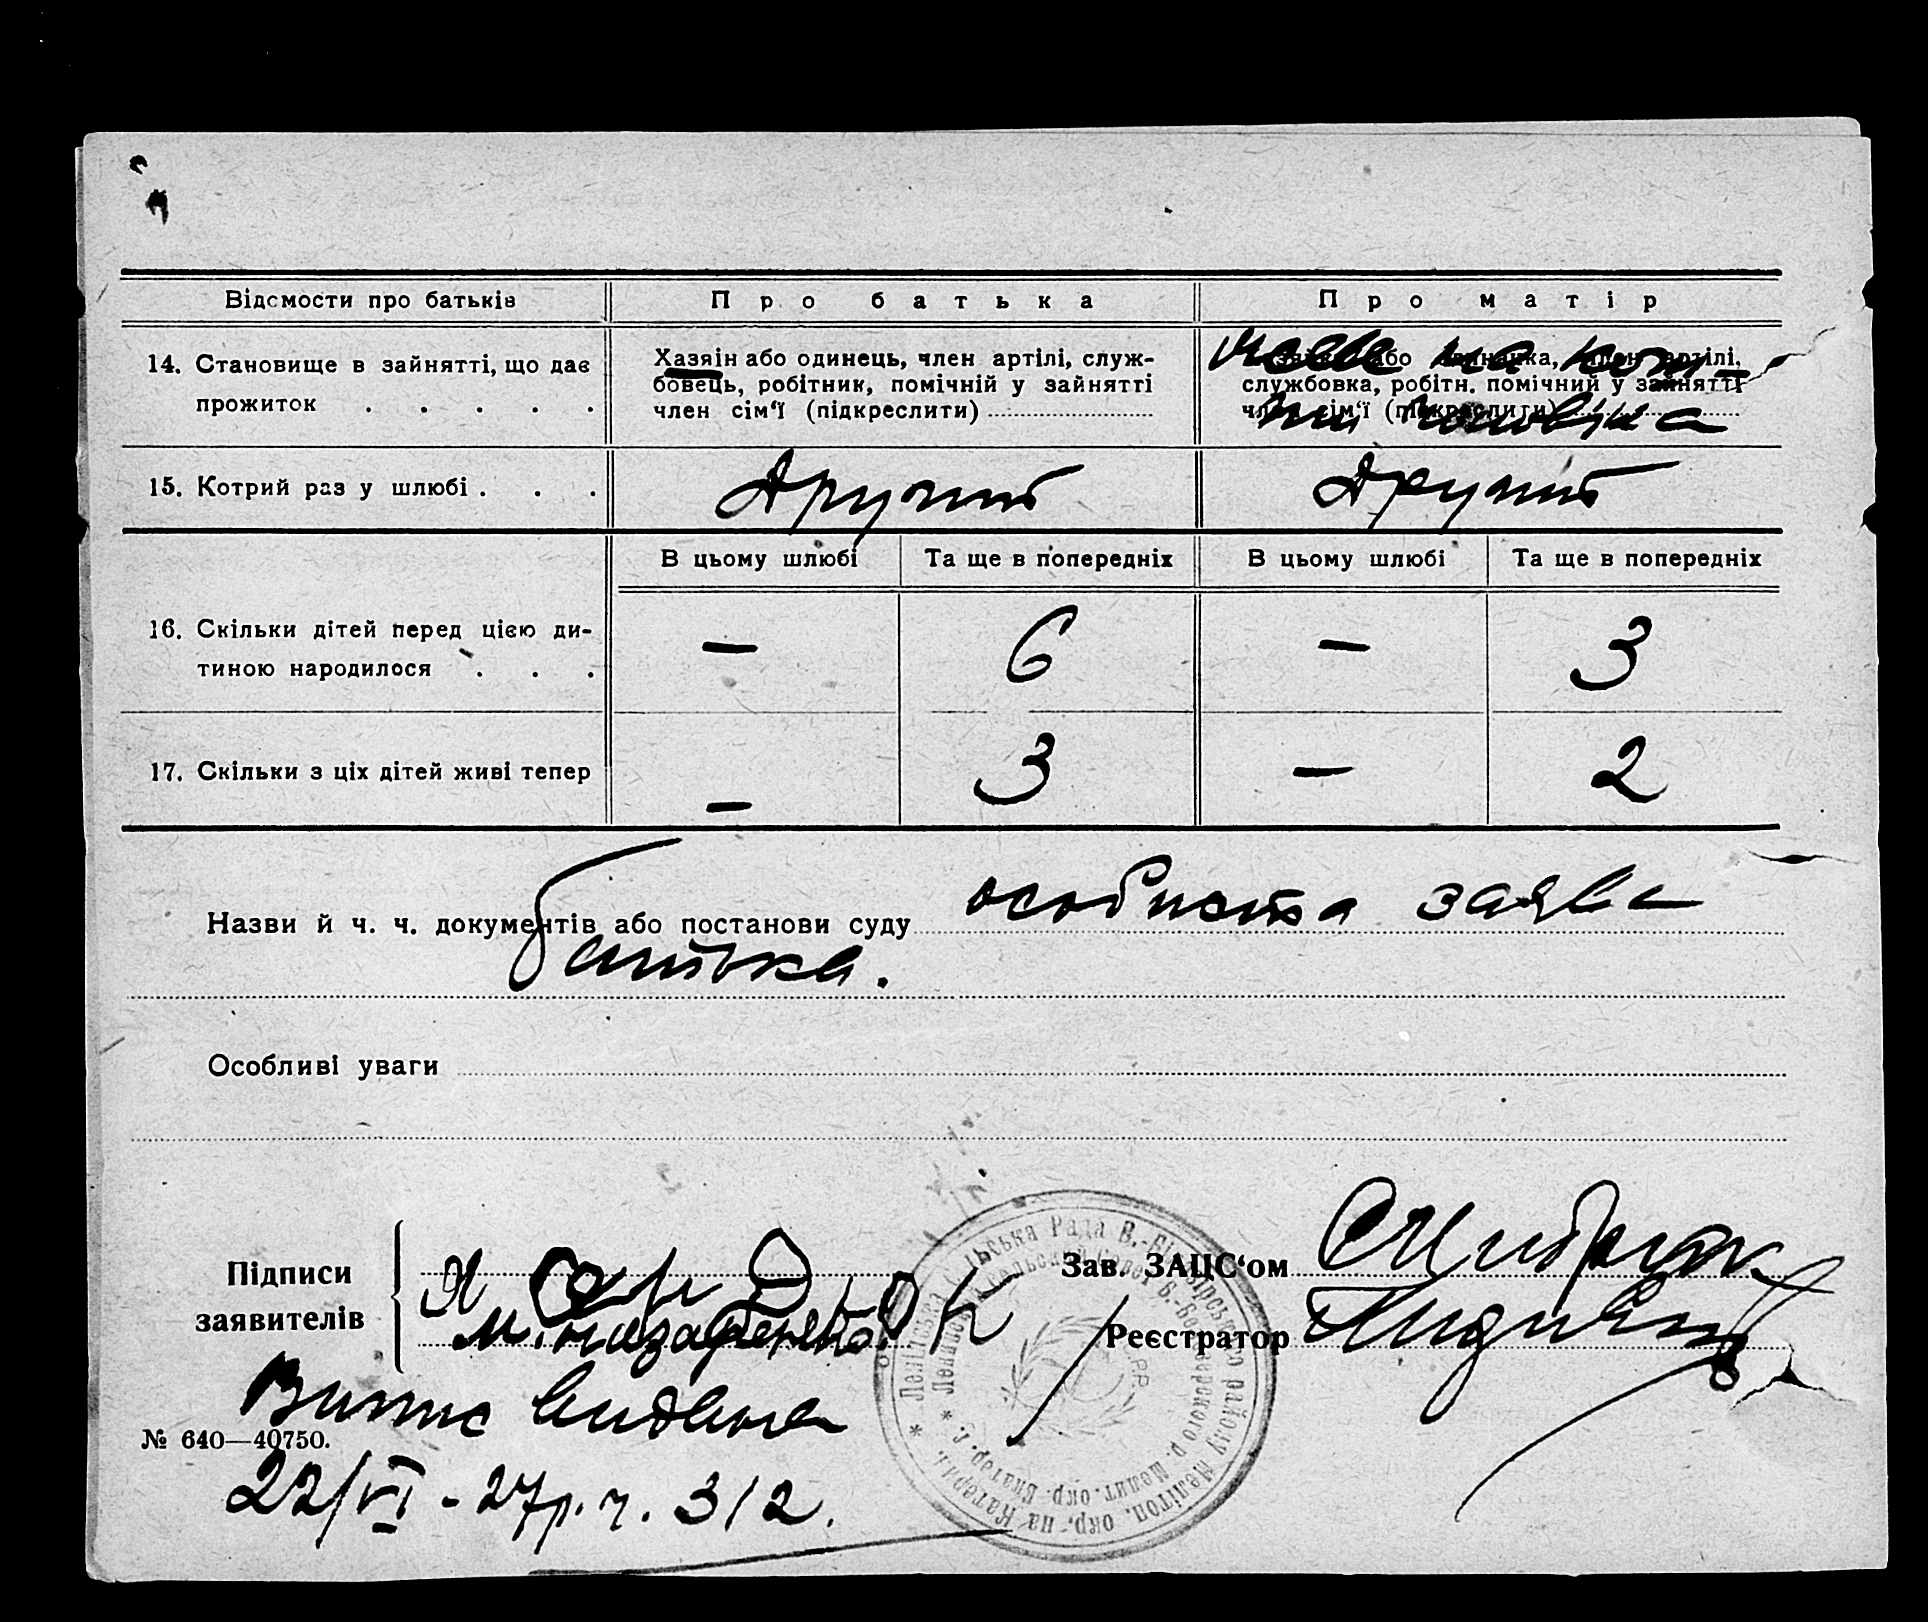 Відомости про батьків
Про батька
Про матір
14. Становище в зайнятті, що дає прожиток . . . . .
Хазяін або одинець, член артілі, служ-
бовець, робітник, помічній у зайнятті
член сім‘ї (підкреслити)
службовка, робітн. помічний у зайнятті
член сім‘ї (підкреслити)
живе на кош-
ти чоловіка
15. Котрий раз у шлюбі . . .
Другий
Другий
В цьому шлюбі
Та ще в попередніх
В цьому шлюбі
Та ще в попередніх
16. Скільки дітей перед цією ди-
тиною народилося . . .
—
6
—
3
17. Скільки з ціх дітей живі тепер
—
3
—
2
Назви й ч. ч. документів або постанови суду особиста заява
батька.
Особливі уваги
Підписи
заявителів
М. Назаренко
Зав. ЗАЦС‘ом
Реєстратор
Випис видана
№ 640—40750.
22/VI - 27р. ч. 312.
Сільська Рада В.-Білозірського району Мелітоп. окр. на Катерин.
Б.-Белозерского р. Мелит. окр. Екатер. г.